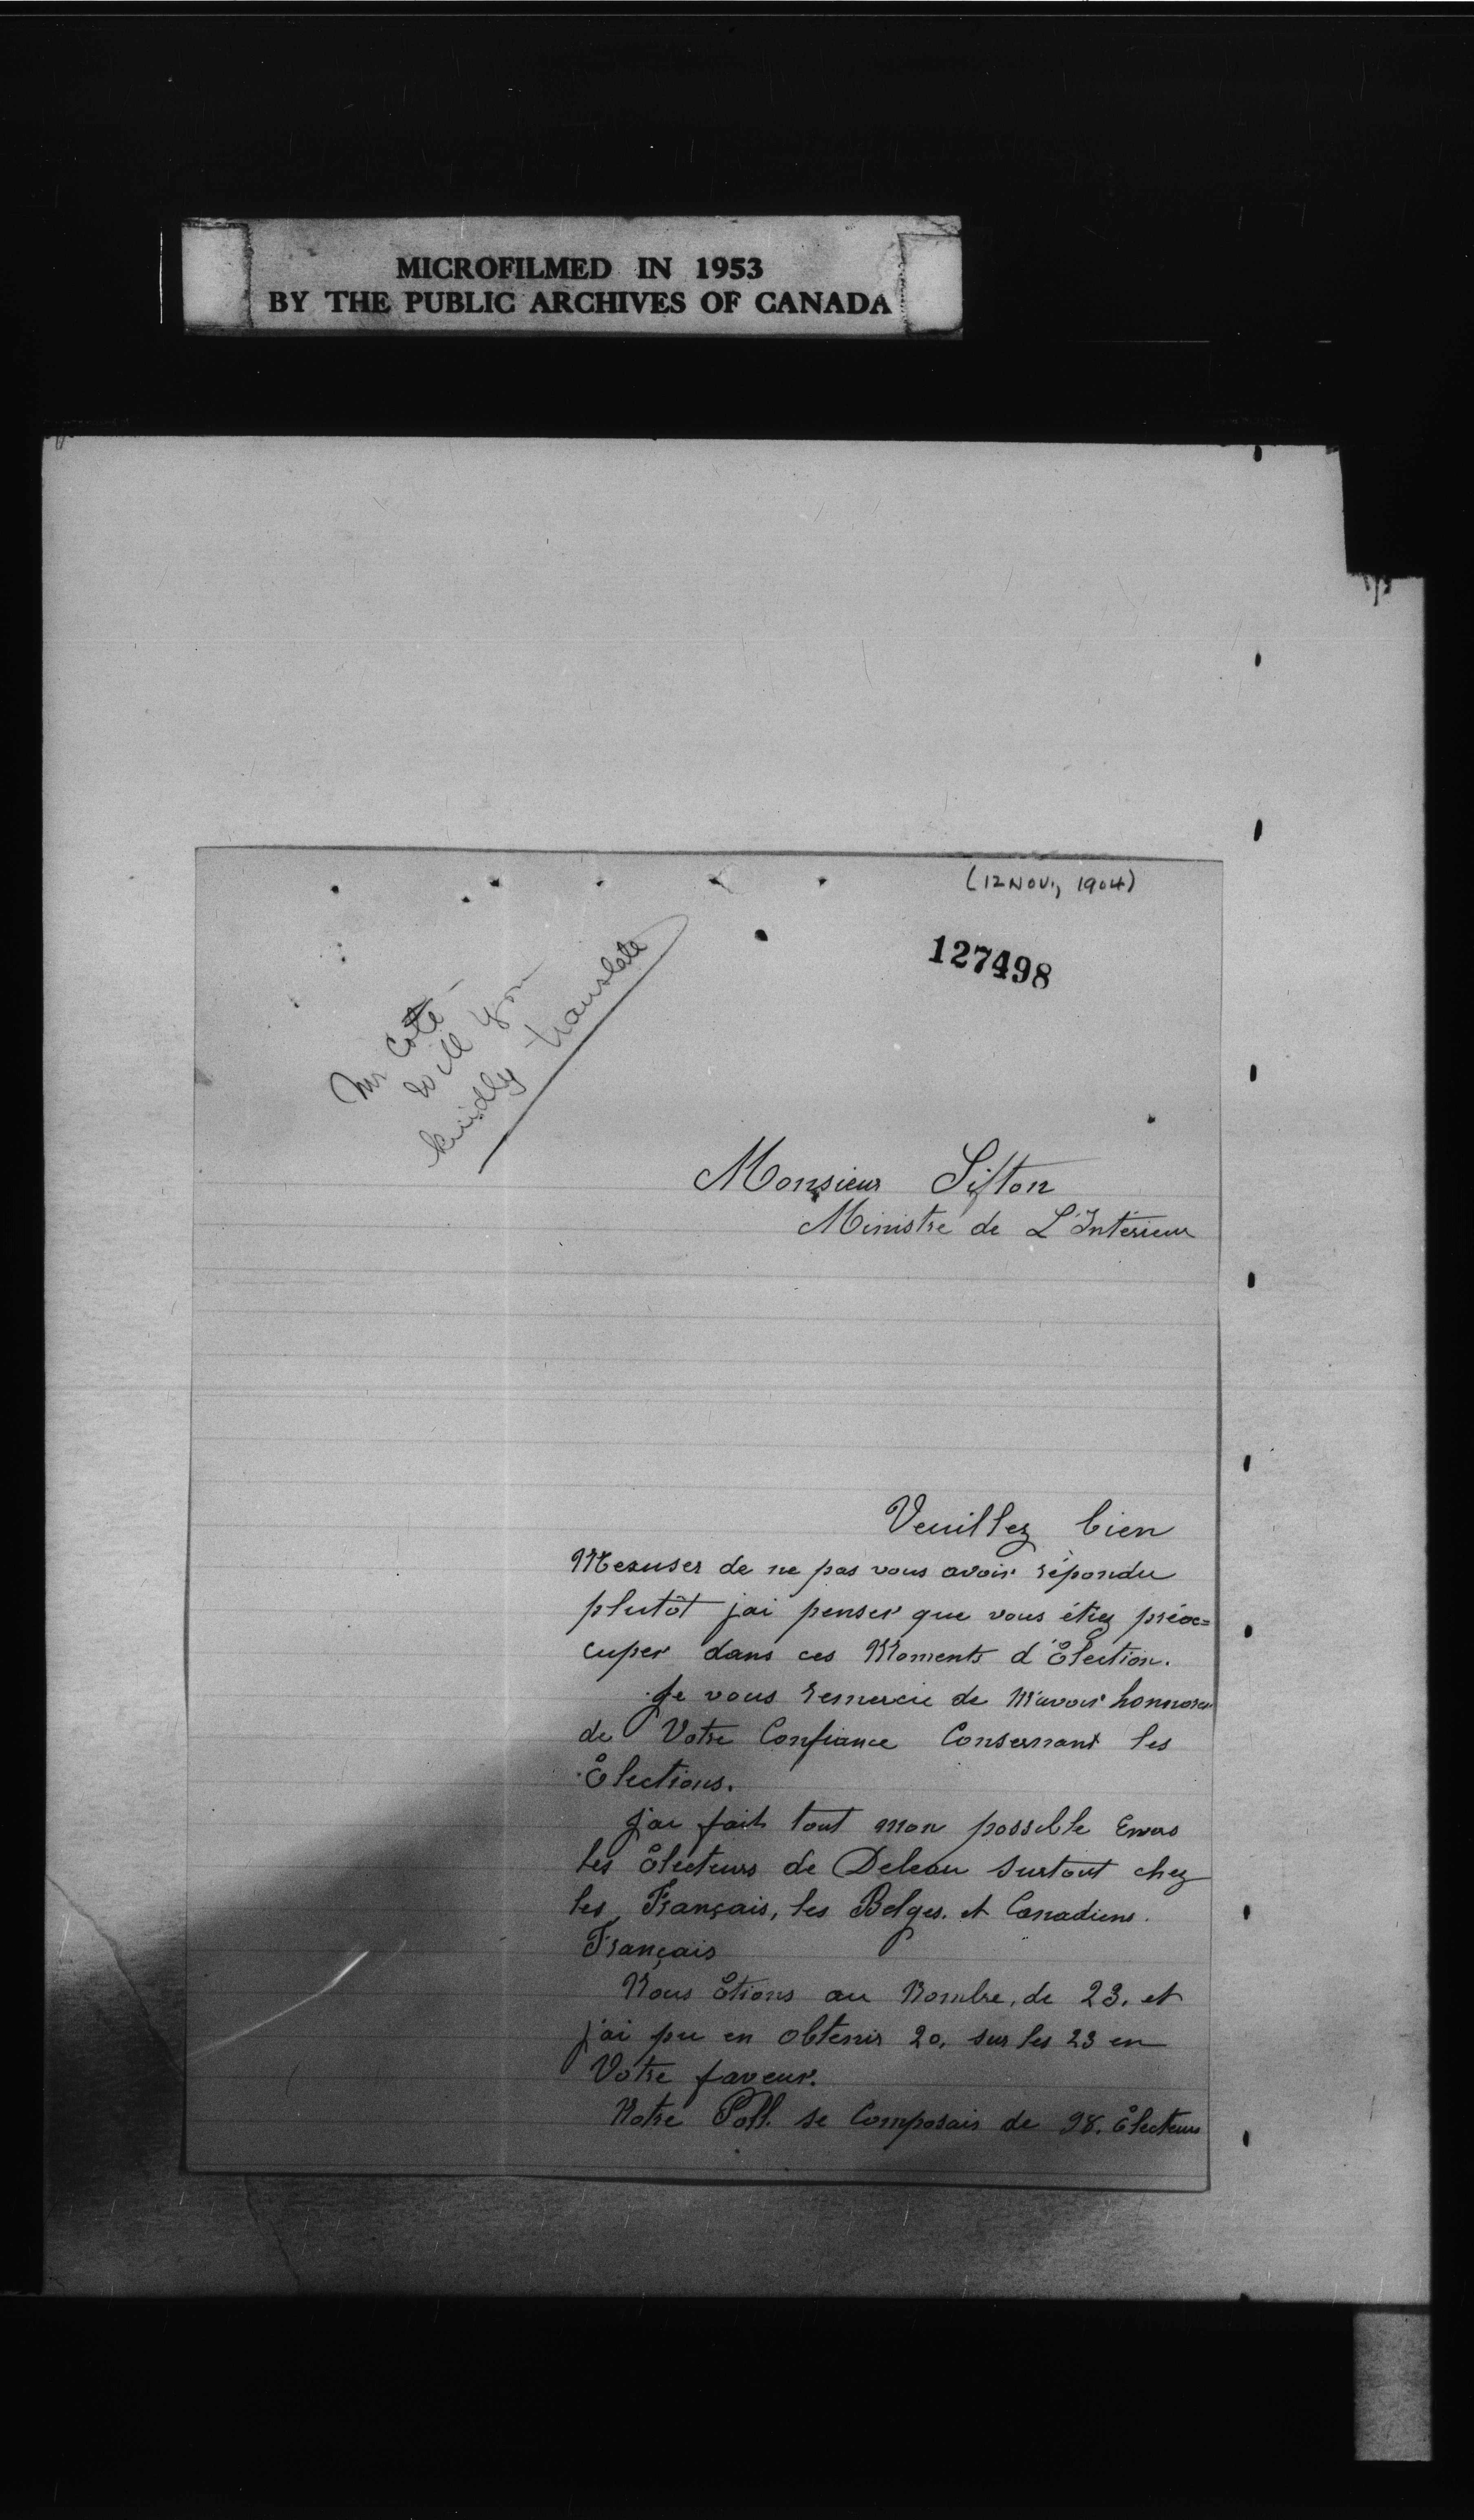 MICROFILMED IN 1953
BY THE PUBLIC ARCHIVES OF CANADA
(12 NOV., 1904)
127498
Mr Coté -
Will you
kindly translate
Monsieur Sifton
Ministre de L'Intérieur
Veuillez bien
M'exuser de ne pas vous avoir répondu
plutôt j'ai penser que vous étiez préoc=
cuper dans ces Moments d'Élection.
Je vous remercie de M'avoir honnorer
de Votre Confiance Consernant les
Élections.
J'ai fait tout mon possible Envers
les Électeurs de Deleau surtout chez
les Français, les Belges. et Canadiens.
Français
Nous Étions au Nombre, de 23. et
j'ai pu en obtenir 20. sur les 23 en
Votre faveur.
Notre Poll. se Composais de 98. Électeurs